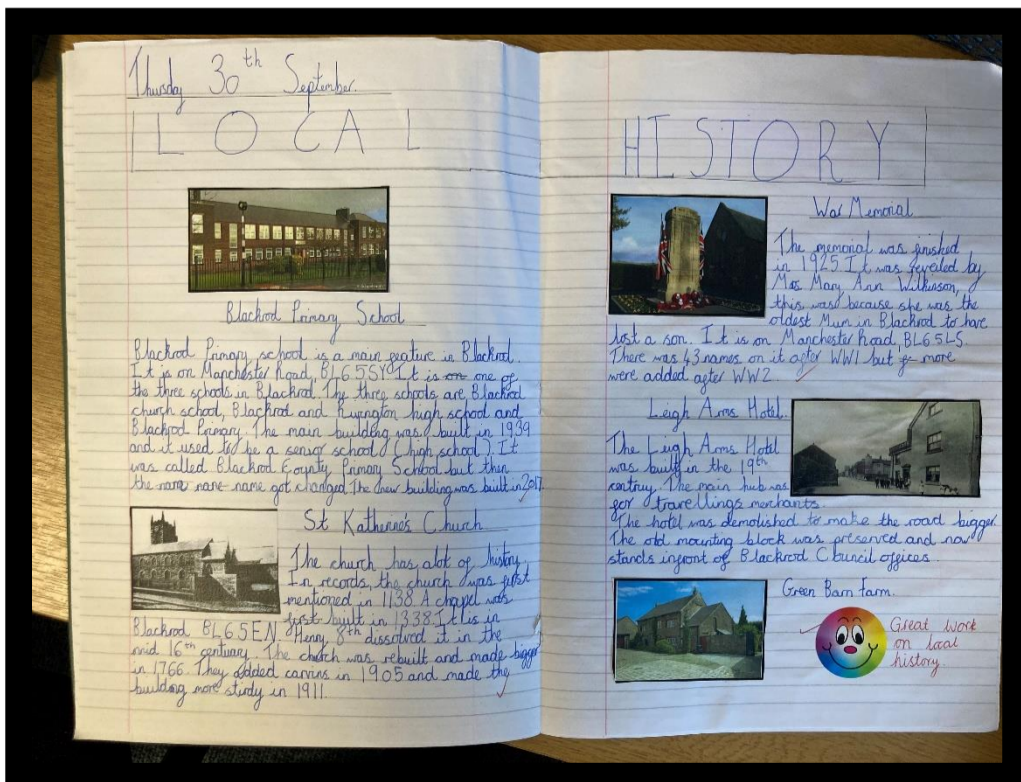 Thursday 30th September.
LOCAL
Blackrod Primary School
Blackrod Primary school is a main feature in Blackrod.
It is on Manchester Road, BL65SY. It is on one of
the three schools in Blackrod. The three schools are Blackrod
church school, Blackrod and Rivington high school and
Blackrod Primary. The main building was built in 1939
and it used to be a senior school (high school). It
was called Blackrod County Primary School but then
the name got changed. The new building was built in 2017
St Katherine's Church
The church has alot of history
In records, the church was first
mentioned in 1138. A chapel was
first built in 1338. It is in
Blackrod BL65EN. Henry 8th dissolved it in the
mid 16th centuary. The church was rebuilt and made bigger
in 1766. They added carvins in 1905 and made the
building more sturdy in 1911.
HISTORY
War Memorial
The memorial was finished
in 1925. It was revealed by
Mrs Mary Ann Wilkinson,
this was because she was the
oldest Mum in Blackrod to have
lost a son. It is on Manchester Road, BL65LS.
There was 43 names on it after WW1 but more
were added after WW2.
Leigh Arms Hotel.
The Leigh Arms Hotel
was built in the 19th
centruy. The main hub was
for travellings merchants.
The hotel was demolished to make the road bigger.
The old mounting block was preserved and now
stands infront of Blackrod Council offices.
Green Barn Farm.
Great work
on local
history.